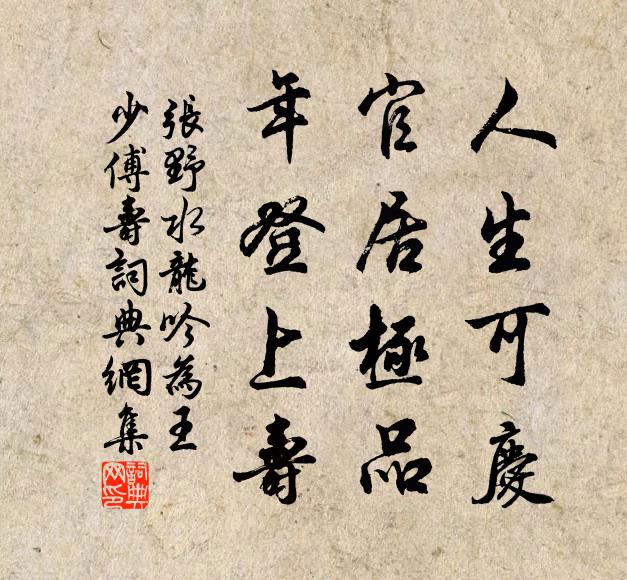 人生可慶
官居極品
年登上壽
張野水龍吟為王
少傅壽詞典網集
詞典
网印